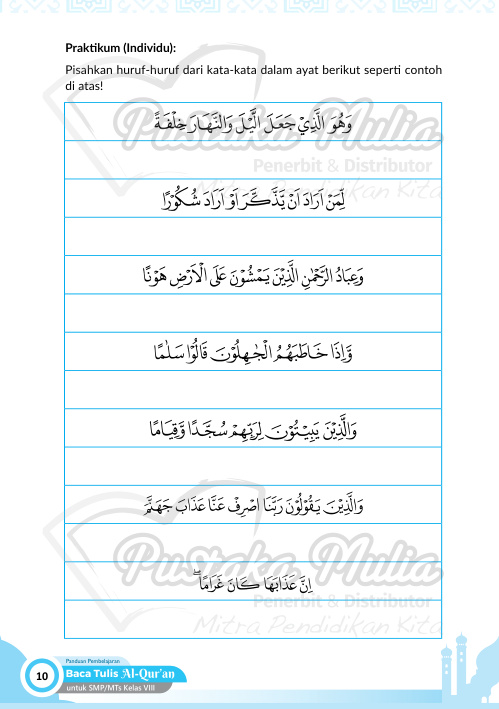 Praktikum (Individu):
Pisahkan huruf-huruf dari kata-kata dalam ayat berikut seperti contoh
di atas!
وَهُوَ الَّذِيْ جَعَلَ الَّيْلَ وَالنَّهَارَ خِلْفَةً
لِّمَنْ اَرَادَ اَنْ يَّذَّكَّرَ اَوْ اَرَادَ شُكُوْرًا
وَعِبَادُ الرَّحْمٰنِ الَّذِيْنَ يَمْشُوْنَ عَلَى الْاَرْضِ هَوْنًا
وَّاِذَا خَاطَبَهُمُ الْجٰهِلُوْنَ قَالُوْا سَلٰمًا
وَالَّذِيْنَ يَبِيْتُوْنَ لِرَبِّهِمْ سُجَّدًا وَّقِيَامًا
وَالَّذِيْنَ يَقُوْلُوْنَ رَبَّنَا اصْرِفْ عَنَّا عَذَابَ جَهَنَّمَ
اِنَّ عَذَابَهَا كَانَ غَرَامًاۖ
Pustaka Mulia
Penerbit & Distributor
Mitra Pendidikan Kita
Pustaka Mulia
Penerbit & Distributor
Mitra Pendidikan Kita
10
Panduan Pembelajaran
Baca Tulis Al-Qur'an
untuk SMP/MTs Kelas VIII